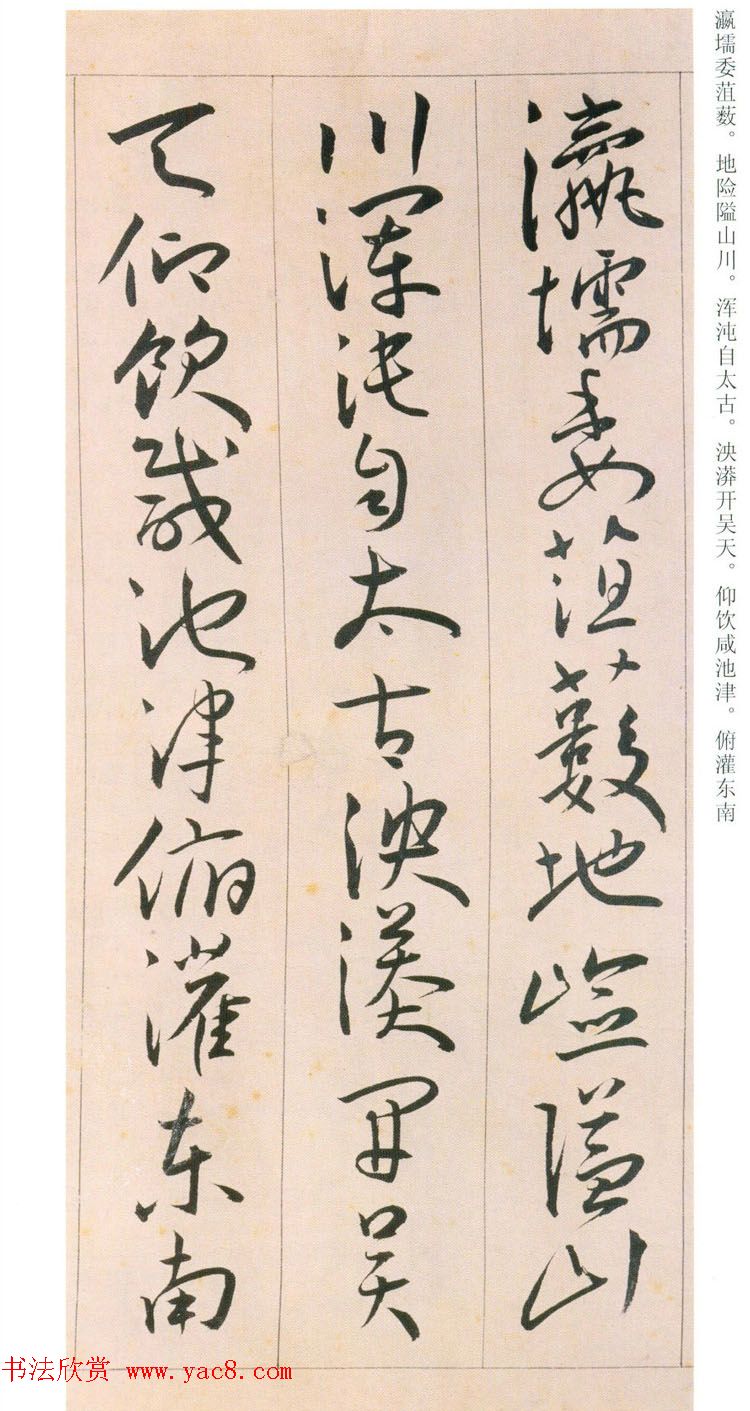 瀛壖委菹薮。地险隘山川。浑沌自太古。泱漭开吴天。仰饮咸池津。俯灌东南
瀛壖委菹薮地嶮隘山
川渾沌自太古泱漭开吴
天仰飲咸池津俯灌东南
书法欣赏 www.yac8.com